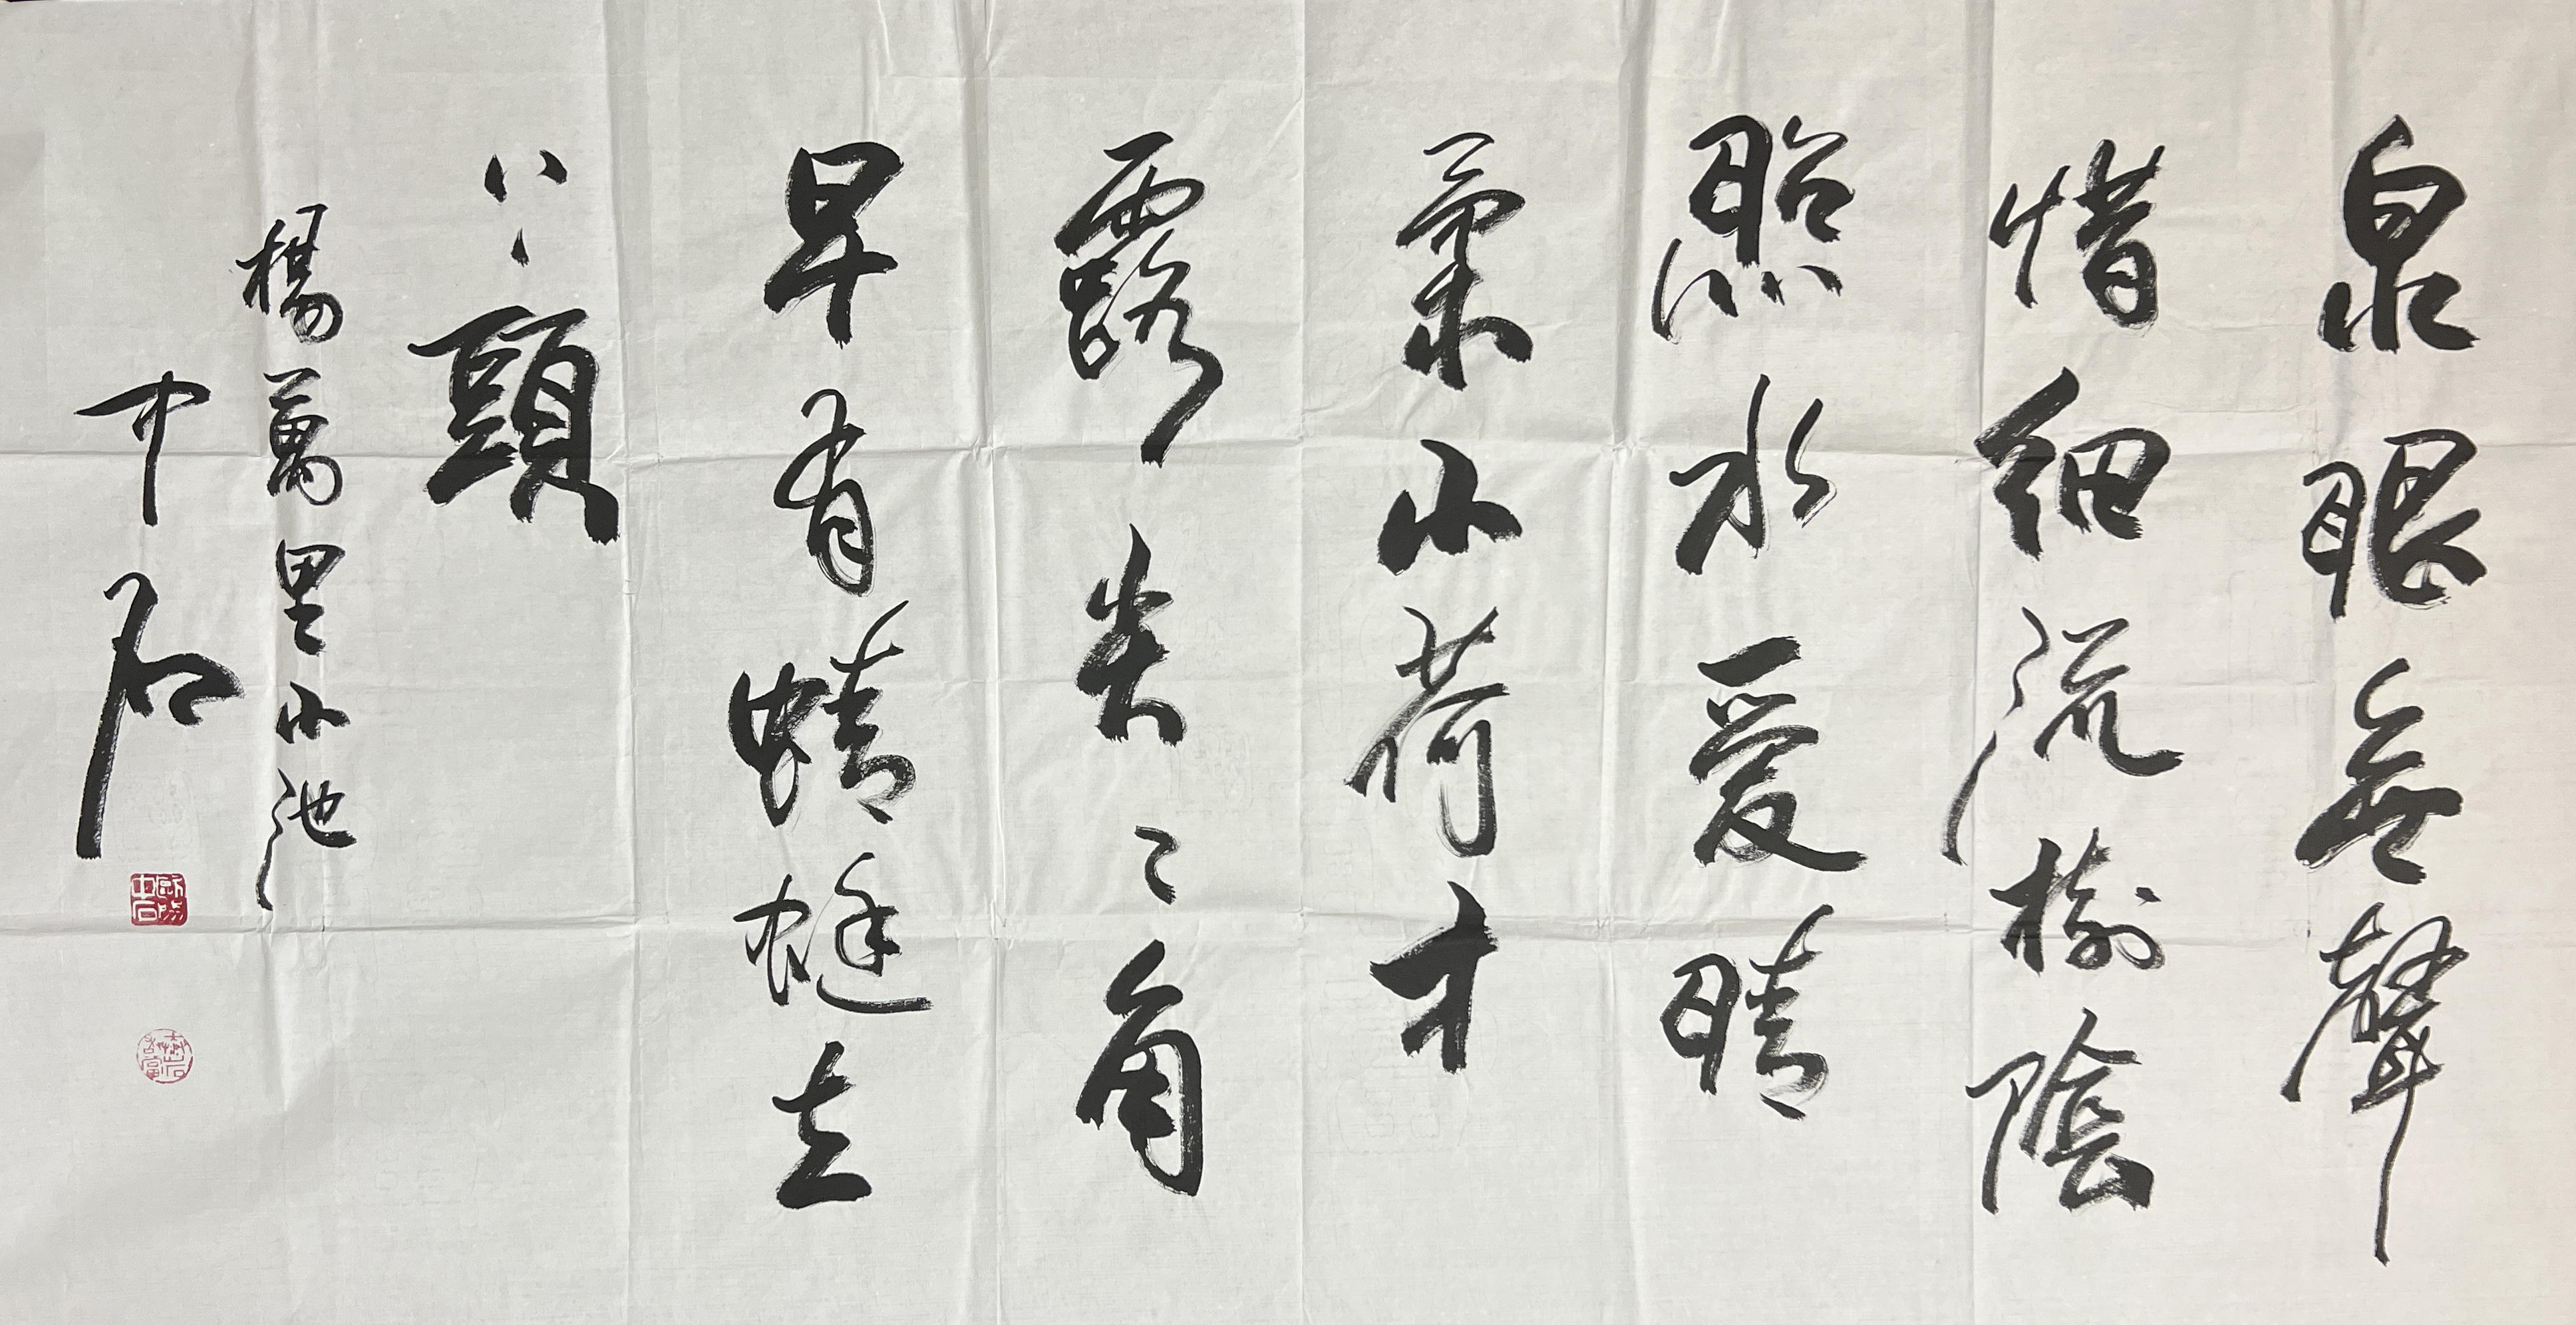 泉眼無聲
惜細流樹陰
照水愛晴
柔小荷才
露尖々角
早有蜻蜓立
上頭
楊萬里小池
中石
歐陽中石